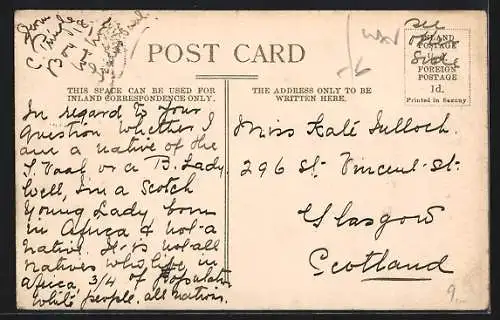 see
other
side
POST CARD
INLAND
POSTAGE
½d
FOREIGN
POSTAGE
1d.
Printed in Saxony
THIS SPACE CAN BE USED FOR
INLAND CORRESPONDENCE ONLY.
THE ADDRESS ONLY TO BE
WRITTEN HERE.
In regard to your
question whether I
am a native of the
T. Vaal or a B. Lady.
Well, Im a Scotch
Young Lady born
in Africa & not a
native. It is not all
natives who live in
Africa 3/4 of population
white people, all nations.
Miss Kate Tulloch.
296 St. Vincent St.
Glasgow
Scotland
9